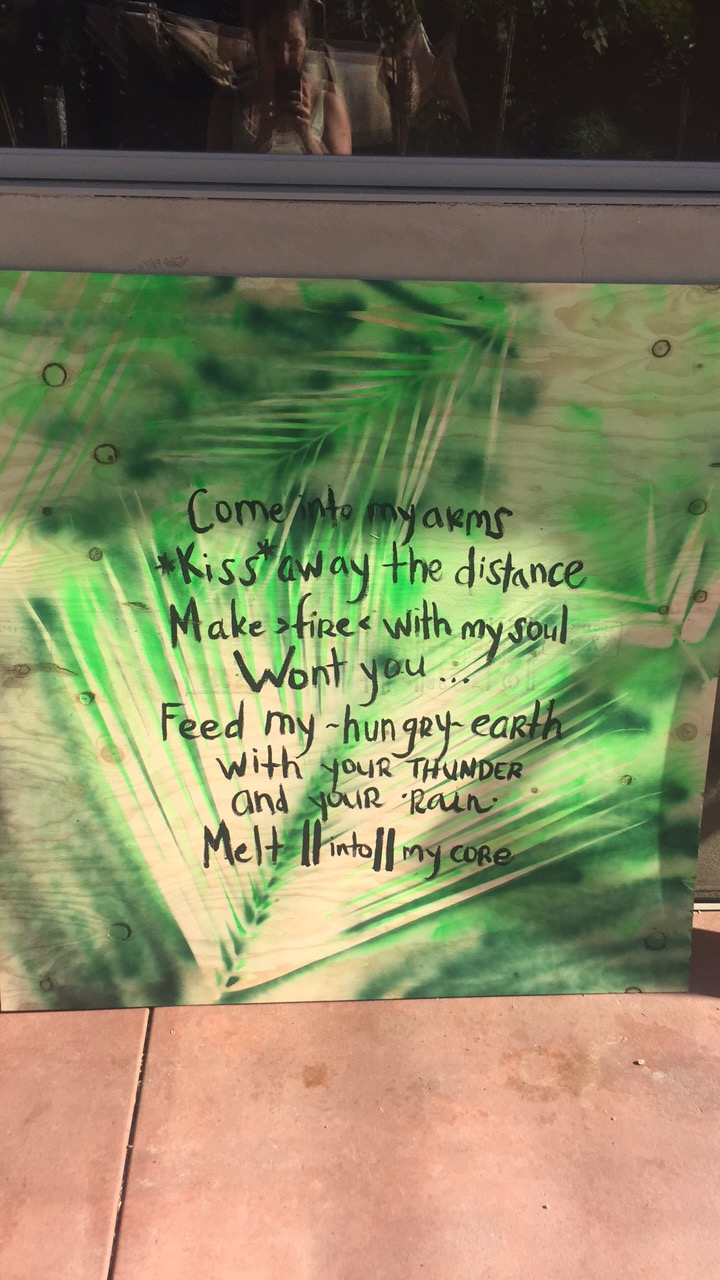 Come into my arms
*Kiss* away the distance
Make >fire< with my soul
Wont you...
Feed my ~hungry~ earth
with your THUNDER
and your ·Rain·
Melt ||into|| my core